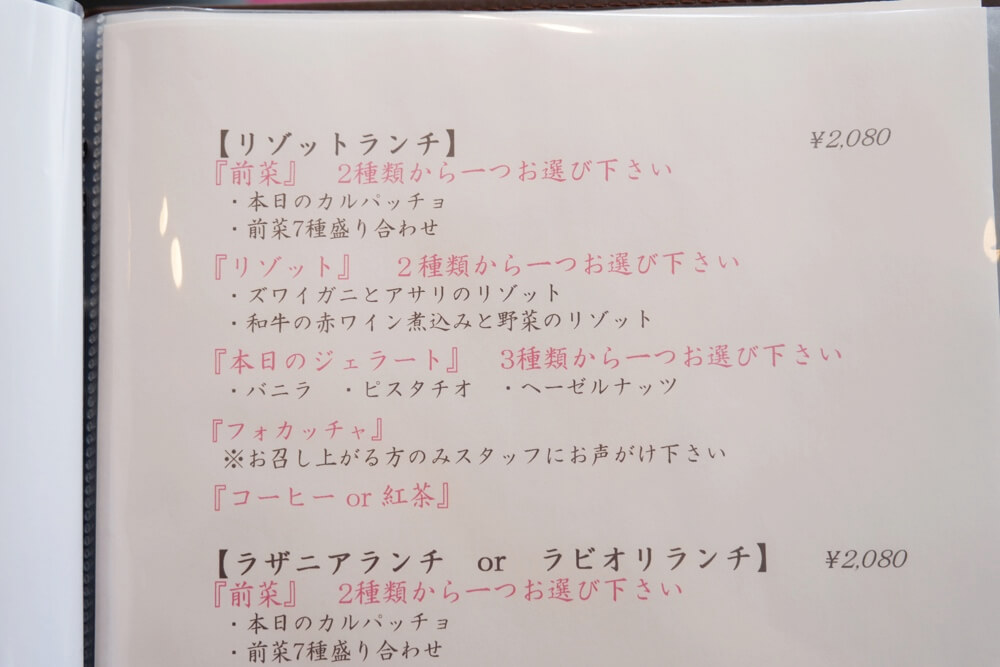 【リゾットランチ】 ¥2,080
『前菜』 2種類から一つお選び下さい
・本日のカルパッチョ
・前菜7種盛り合わせ
『リゾット』 2種類から一つお選び下さい
・ズワイガニとアサリのリゾット
・和牛の赤ワイン煮込みと野菜のリゾット
『本日のジェラート』 3種類から一つお選び下さい
・バニラ ・ピスタチオ ・ヘーゼルナッツ
『フォカッチャ』
※お召し上がる方のみスタッフにお声がけ下さい
『コーヒー or 紅茶』
【ラザニアランチ or ラビオリランチ】 ¥2,080
『前菜』 2種類から一つお選び下さい
・本日のカルパッチョ
・前菜7種盛り合わせ